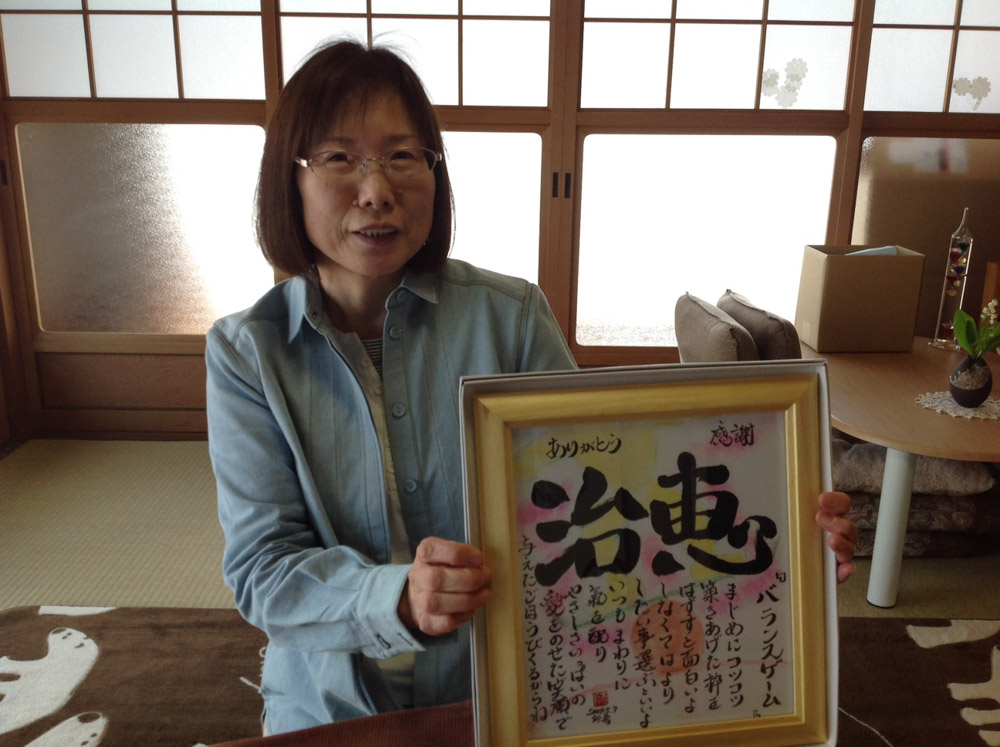 ありがとう 感謝
治恵
バランスゲーム
まじめにコツコツ
築きあげた枠を
はずすと面白いよ
しなくてはより
したい事選ぶといいよ
いつもまわりに
氣を配り
やさしさいっぱいの
愛をのせた笑顔で
与えたごほうびくるからね